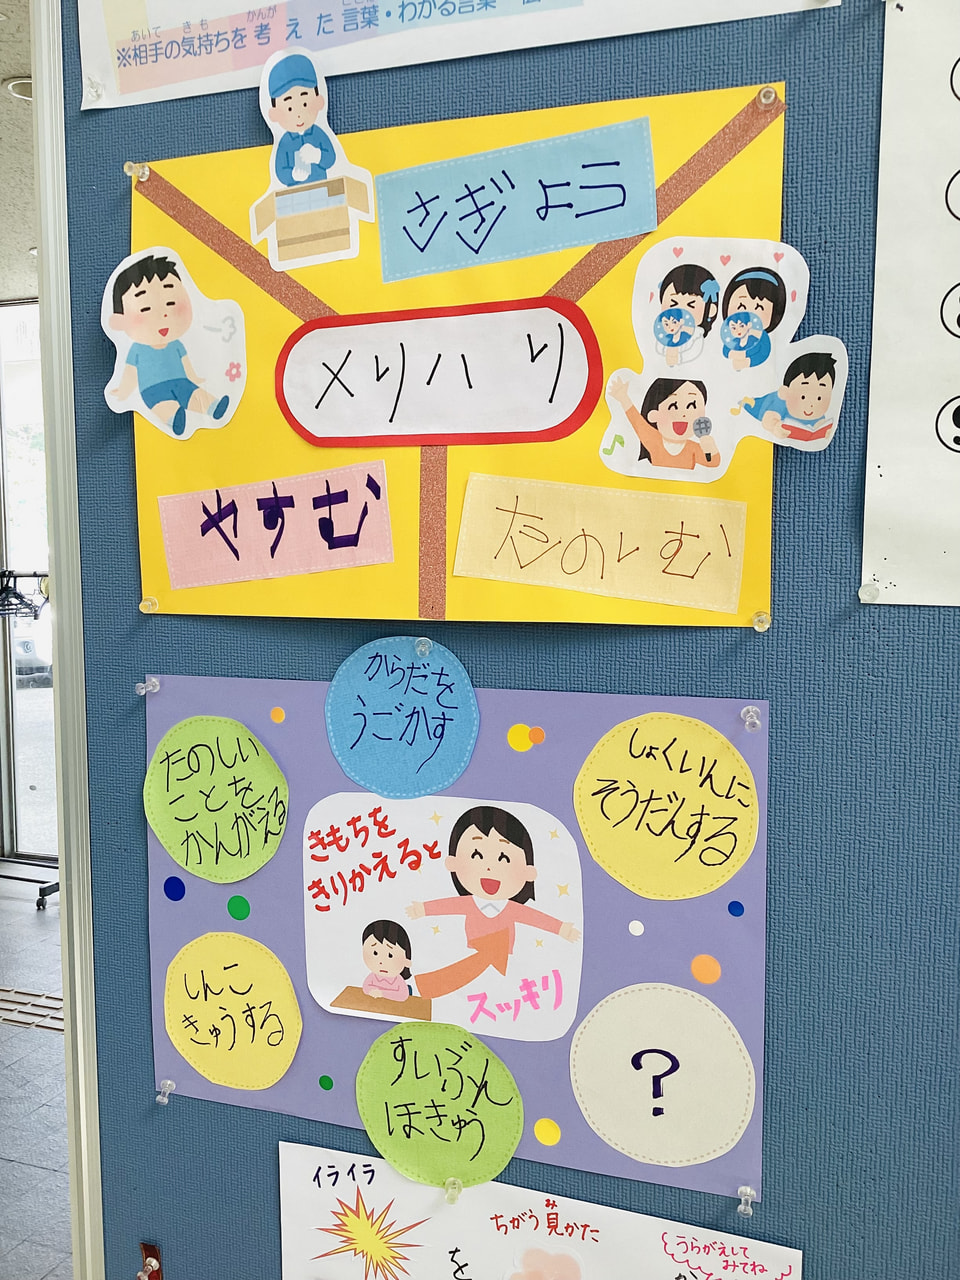 ※相手の気持ちを考えた言葉・わかる言葉
あいて きも かんが
さぎょう
メリハリ
やすむ
たのしむ
からだを
うごかす
たのしい
ことを
かんがえる
しょくいんに
そうだんする
きもちを
きりかえると
スッキリ
しんこ
きゅうする
すいぶん
ほきゅう
?
イライラ
を
み
ちがう見かた
うらがえして
みてね